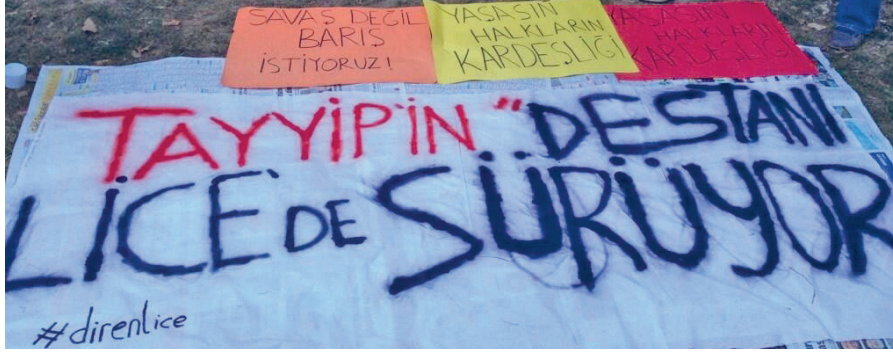 SAVAŞ DEĞİL
BARIŞ
İSTİYORUZ!
YAŞASIN
HALKLARIN
KARDEŞLİĞİ
YAŞASIN
HALKLARIN
KARDEŞLİĞİ
TAYYİP'İN "DESTANI
LİCE'DE SÜRÜYOR
#direnlice